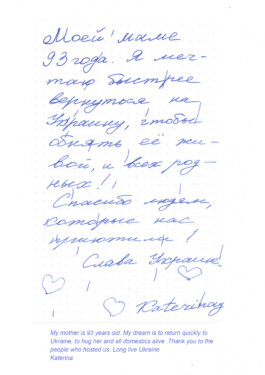 Моей маме
93 года. Я меч-
таю быстрее
вернуться на
Украину, чтобы
обнять её жи-
вой, и всех род-
ных!
Спасибо людям,
которые нас
приютили!
Слава Украине!
Katerina
My mother is 93 years old. My dream is to return quickly to
Ukraine, to hug her and all domestics alive .Thank you to the
people who hosted us. Long live Ukraine
Katerina